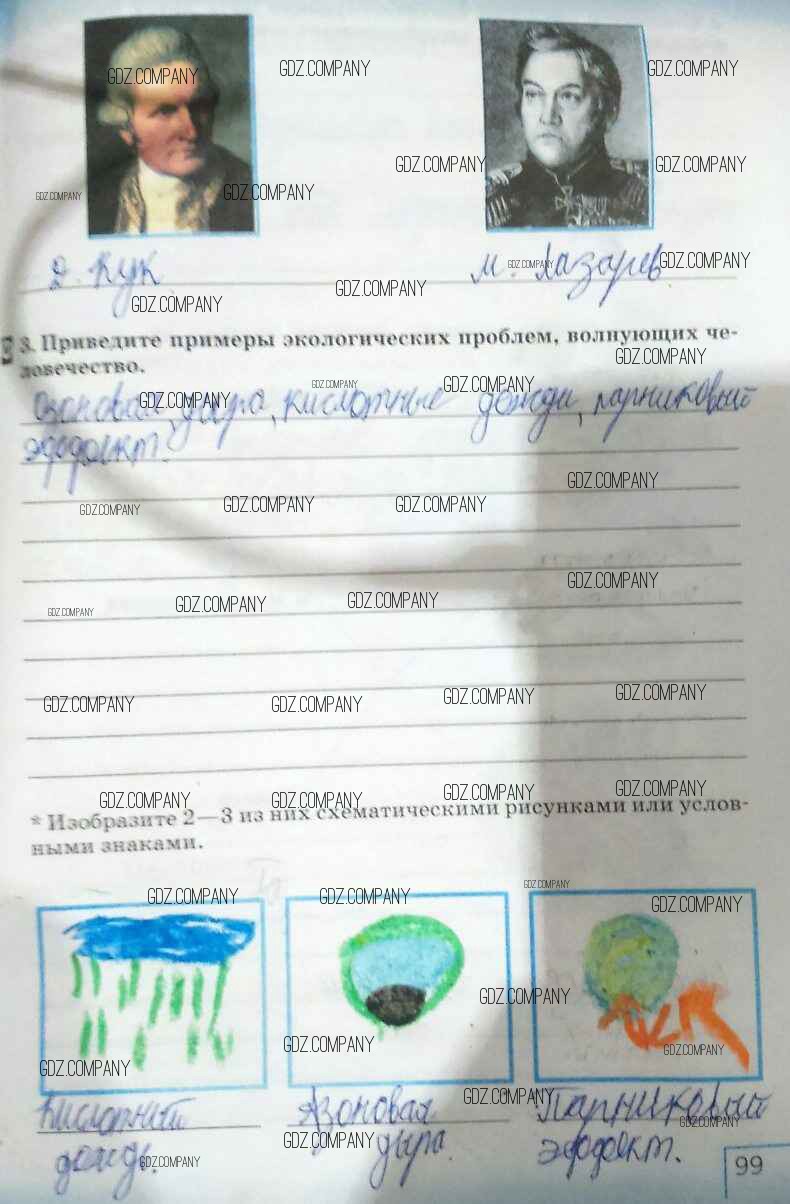 GDZ.COMPANY GDZ.COMPANY GDZ.COMPANY
GDZ.COMPANY GDZ.COMPANY
GDZ.COMPANY GDZ.COMPANY
Д. Кук. М. Лазарев
GDZ.COMPANY GDZ.COMPANY
GDZ.COMPANY GDZ.COMPANY
3. Приведите примеры экологических проблем, волнующих че-
ловечество.
GDZ.COMPANY
GDZ.COMPANY GDZ.COMPANY GDZ.COMPANY
Озоновая дыра, кислотные дожди, парниковый
эффект.
GDZ.COMPANY
GDZ.COMPANY GDZ.COMPANY GDZ.COMPANY
GDZ.COMPANY
GDZ.COMPANY GDZ.COMPANY GDZ.COMPANY
GDZ.COMPANY GDZ.COMPANY GDZ.COMPANY GDZ.COMPANY
GDZ.COMPANY GDZ.COMPANY GDZ.COMPANY GDZ.COMPANY
* Изобразите 2—3 из них схематическими рисунками или услов-
ными знаками.
GDZ.COMPANY GDZ.COMPANY GDZ.COMPANY GDZ.COMPANY
GDZ.COMPANY
GDZ.COMPANY GDZ.COMPANY GDZ.COMPANY
GDZ.COMPANY GDZ.COMPANY
Кислотный Азоновая Парниковый
дождь. дыра. эффект.
GDZ.COMPANY GDZ.COMPANY
99